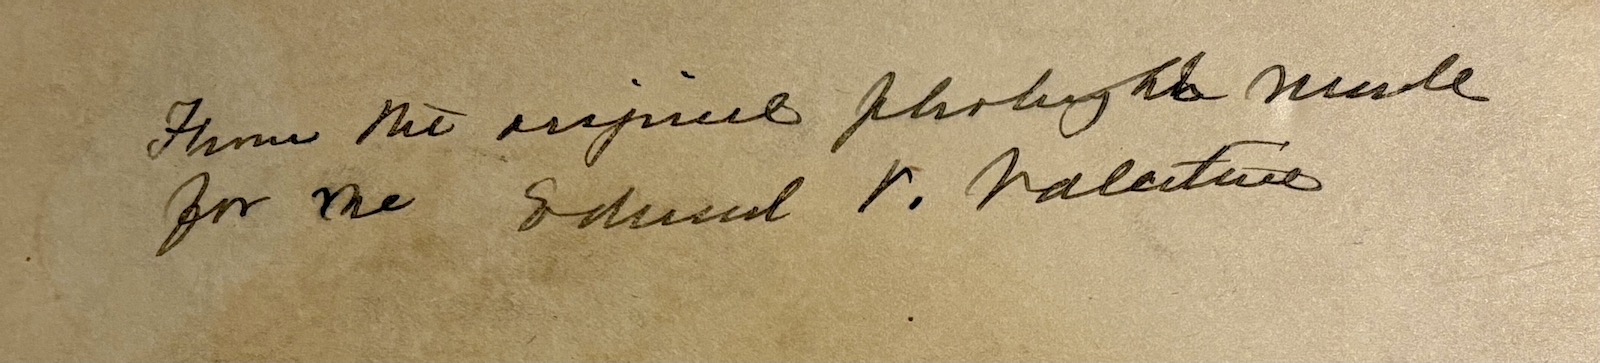 From the original photographs made
for me Edward V. Valentine